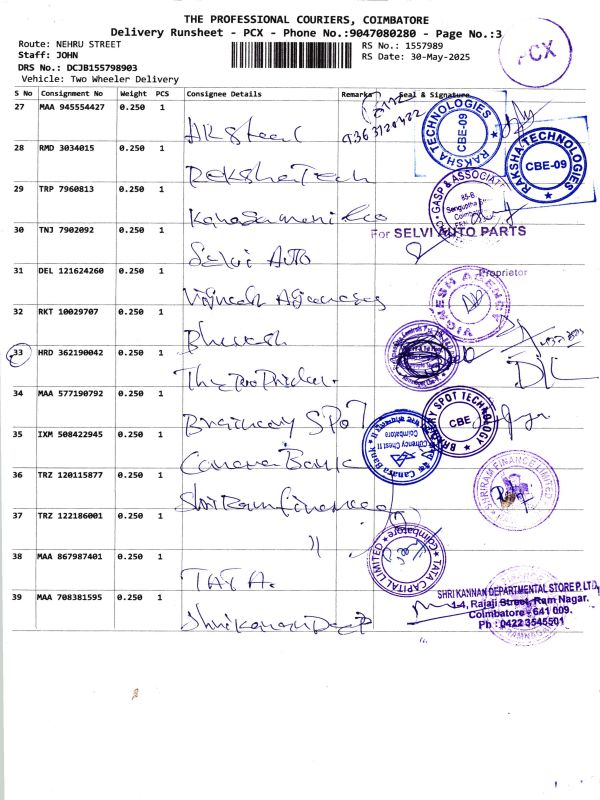 THE PROFESSIONAL COURIERS, COIMBATORE
Delivery Runsheet - PCX - Phone No.:9047080280 - Page No.:3
Route: NEHRU STREET
RS No.: 1557989
Staff: JOHN
RS Date: 30-May-2025
DRS No.: DCJB155798903
Vehicle: Two Wheeler Delivery
PCX
S No Consignment No Weight PCS Consignee Details Remarks Seal & Signature
27 MAA 945554427 0.250 1 AK Steel
9363120422
RAKSHA TECHNOLOGIES CBE-09
RAKSHA TECHNOLOGIES CBE-09
28 RMD 3034015 0.250 1 Raksha Tech
29 TRP 7960813 0.250 1
GASP & ASSOCIATES
30 TNJ 7902092 0.250 1 Selvi Auto
For SELVI AUTO PARTS
Proprietor
31 DEL 121624260 0.250 1 Vignesh Agencies
VIGNESH AGENCY
32 RKT 10029707 0.250 1
33 HRD 362190042 0.250 1
34 MAA 577190792 0.250 1 Brainary Spot
BRAINARY SPOT TECHNOLOGY CBE
35 IXM 508422945 0.250 1 Canara Bank
Canara Bank
Currency Chest II
Coimbatore
36 TRZ 120115877 0.250 1 Shri Ram Finance
SHRIRAM FINANCE LIMITED
37 TRZ 122186001 0.250 1 "
38 MAA 867987401 0.250 1 TATA.
TATA CAPITAL LIMITED Coimbatore
39 MAA 708381595 0.250 1 Shri Kannan Dept
SHRI KANNAN DEPARTMENTAL STORE P. LTD,
1-4, Rajaji Street, Ram Nagar.
Coimbatore - 641 009.
Ph : 0422 3545501